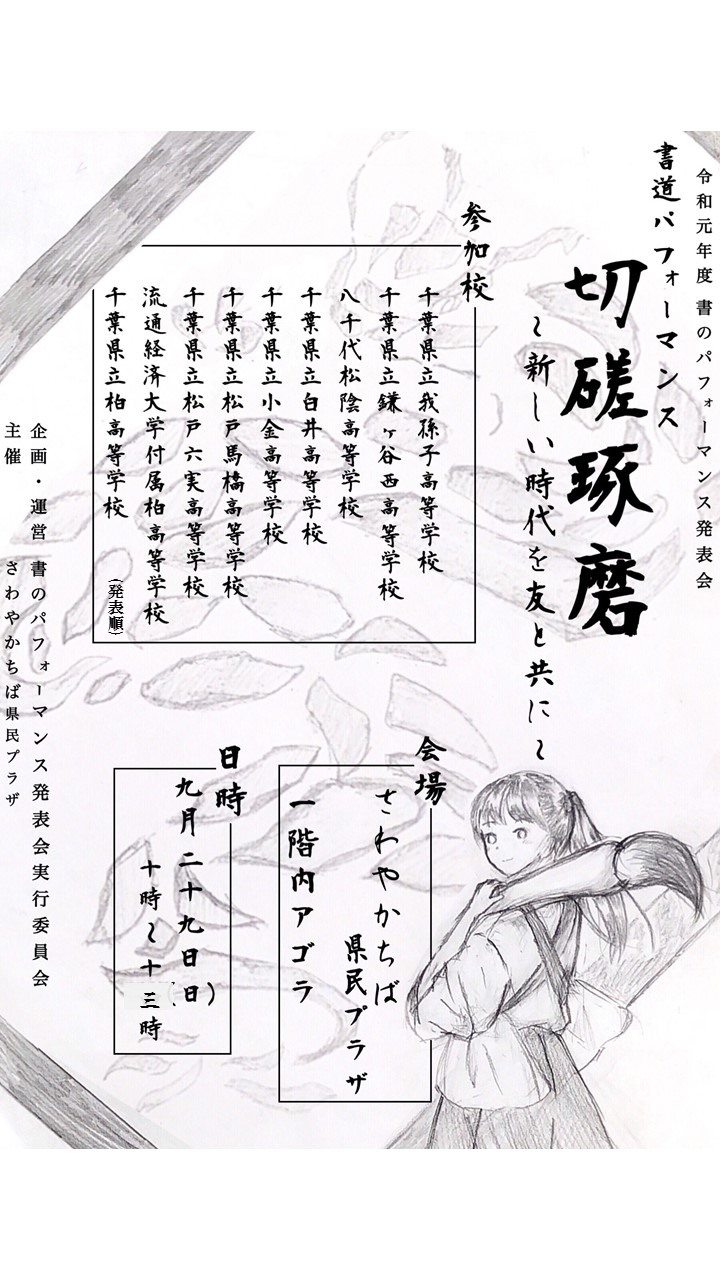 令和元年度 書のパフォーマンス発表会
書道パフォーマンス
切磋琢磨
～新しい時代を友と共に～
参加校
千葉県立我孫子高等学校
千葉県立鎌ヶ谷西高等学校
八千代松陰高等学校
千葉県立白井高等学校
千葉県立小金高等学校
千葉県立松戸馬橋高等学校
千葉県立松戸六実高等学校
流通経済大学付属柏高等学校
千葉県立柏高等学校
(発表順)
会場
さわやかちば
県民プラザ
一階内アゴラ
日時
九月二十九日(日)
十時～十三時
企画・運営 書のパフォーマンス発表会実行委員会
主催 さわやかちば県民プラザ